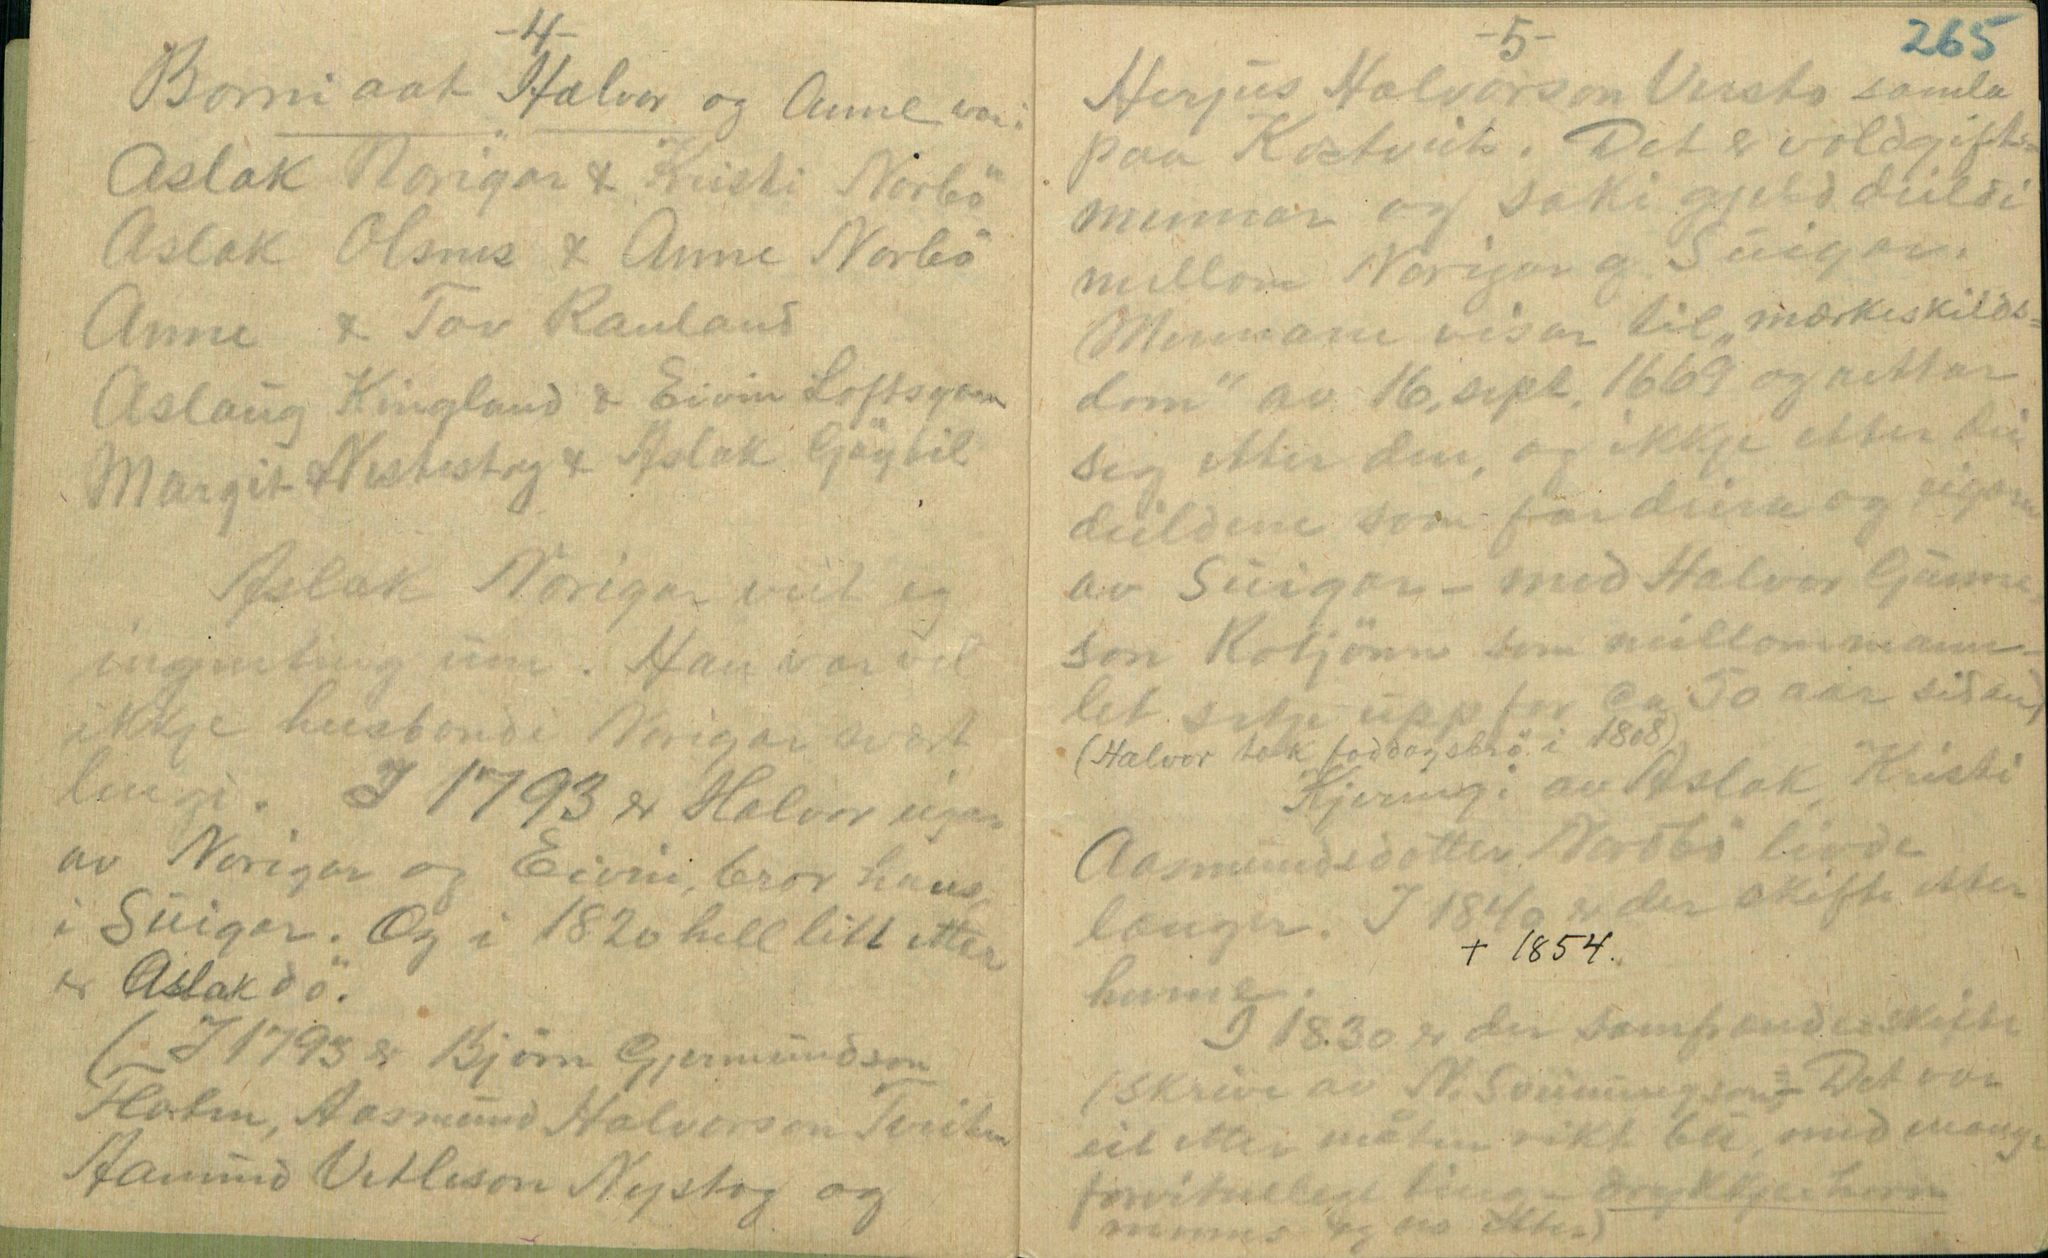 -4-
Borni aat Halvor og Anne var:
Aslak Norigar & Kristi Norbö
Aslak Olsnes & Anne Norbö
Anne & Tov Rauland
Aslaug Kingland & Eivin Loftsgarn
Margit & Nestestog & Aslak Göytil
Aslak Norigar veit eg
ingenting um. Han var vel
ikkje husbonde Norigar svært
lengi. I 1793 er Halvor eigar
av Norigar og Eivin, bror hans,
i Suigar. Og i 1820 hell litt etter
er Aslak dö.
( I 1793 er Björn Gjermundson
Flaten, Aasmund Halvorson Tveiten
Aamund Vetleson Nystog og
-5-
265
Herjus Halvorson Versto samla
paa Kostveit. Det er voldgifts=
mennar og saki gjeld deildi
millom Norigar og Suigar.
Mennane visar til "mærkeskilds=
dom" av 16. sept. 1669 og rettar
seg etter den, og ikkje etter dei
deildene som far deira og eigaren
av Suigar - med Halvor Gunne
son Kotjönn som millommann -
let setje upp for ca 50 aar sidan)
(Halvor tok foddogsbrö. i 1808)
Kjeringi av Aslak, Kristi
Aasmundsdotter Nordbö livde
lenger. I 1840 er der skifte etter
+ 1854.
henne.
I 1830 er der samfrændeskifte
(skrive av N. Sveinungson) - Det var
eit etter måten rikt bu, med mange
forvitnelege ting - drykkjehorn
minnes eg no etter)